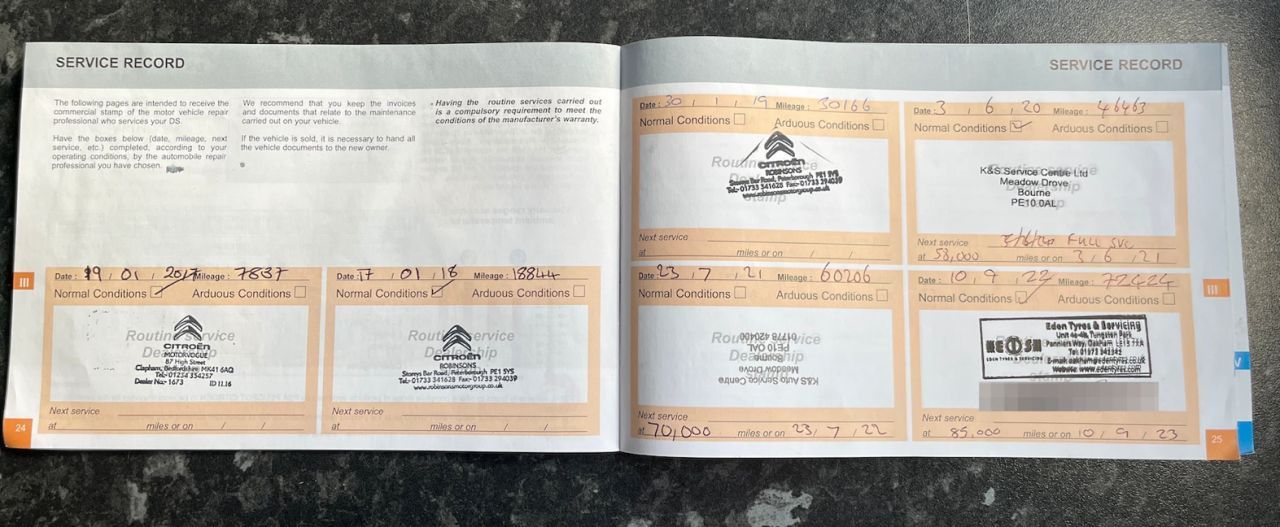 SERVICE RECORD
The following pages are intended to receive the
commercial stamp of the motor vehicle repair
professional who services your DS.
Have the boxes below (date, mileage, next
service, etc.) completed, according to your
operating conditions, by the automobile repair
professional you have chosen.
We recommend that you keep the invoices
and documents that relate to the maintenance
carried out on your vehicle.
If the vehicle is sold, it is necessary to hand all
the vehicle documents to the new owner.
Having the routine services carried out
is a compulsory requirement to meet the
conditions of the manufacturer's warranty.
III
Date: 19, 01, 2017 Mileage: 7837
Normal Conditions Arduous Conditions
Routine service
Dealership
CITROËN
MOTORVOGUE
87 High Street
Clapham, Bedfordshire MK41 6AQ
Tel: 01234 354257
Dealer No: 1673 ID 11.16
Next service
at miles or on / /
Date: 17, 01, 18 Mileage: 18844
Normal Conditions Arduous Conditions
Routine service
Dealership
CITROËN
ROBINSONS
Storeys Bar Road, Peterborough PE1 5YS
Tel: 01733 341628 Fax: 01733 294039
www.robinsonsmotorgroup.co.uk
Next service
at miles or on / /
24
SERVICE RECORD
Date: 30, 1, 19 Mileage: 30166
Normal Conditions Arduous Conditions
Routine service
stamp
CITROËN
ROBINSONS
Storeys Bar Road, Peterborough PE1 5YS
Tel: 01733 341628 Fax: 01733 294039
www.robinsonsmotorgroup.co.uk
Next service
at miles or on / /
Date: 3, 6, 20 Mileage: 46463
Normal Conditions Arduous Conditions
Routine service
Dealership
stamp
K&S Service Centre Ltd
Meadow Drove
Bourne
PE10 0AL
Next service Full SVC
at 58,000 miles or on 3, 6, 21
Date: 23, 7, 21 Mileage: 60206
Normal Conditions Arduous Conditions
Routine service
Dealership
stamp
K&S Auto Service Centre
Meadow Drove
Bourne
PE10 0AL
01778 420400
Next service
at 70,000 miles or on 23, 7, 22
Date: 10, 9, 22 Mileage: 72424
Normal Conditions Arduous Conditions
Eden Tyres & Servicing
Unit 4a-4b, Tungsten Park
Panniers Way, Oakham LE15
EDEN TYRES & SERVICING
E-mail: oakham@edentyres.co.uk
Website: www.edentyres.com
stamp
Next service
at 85,000 miles or on 10, 9, 23
III
V
25